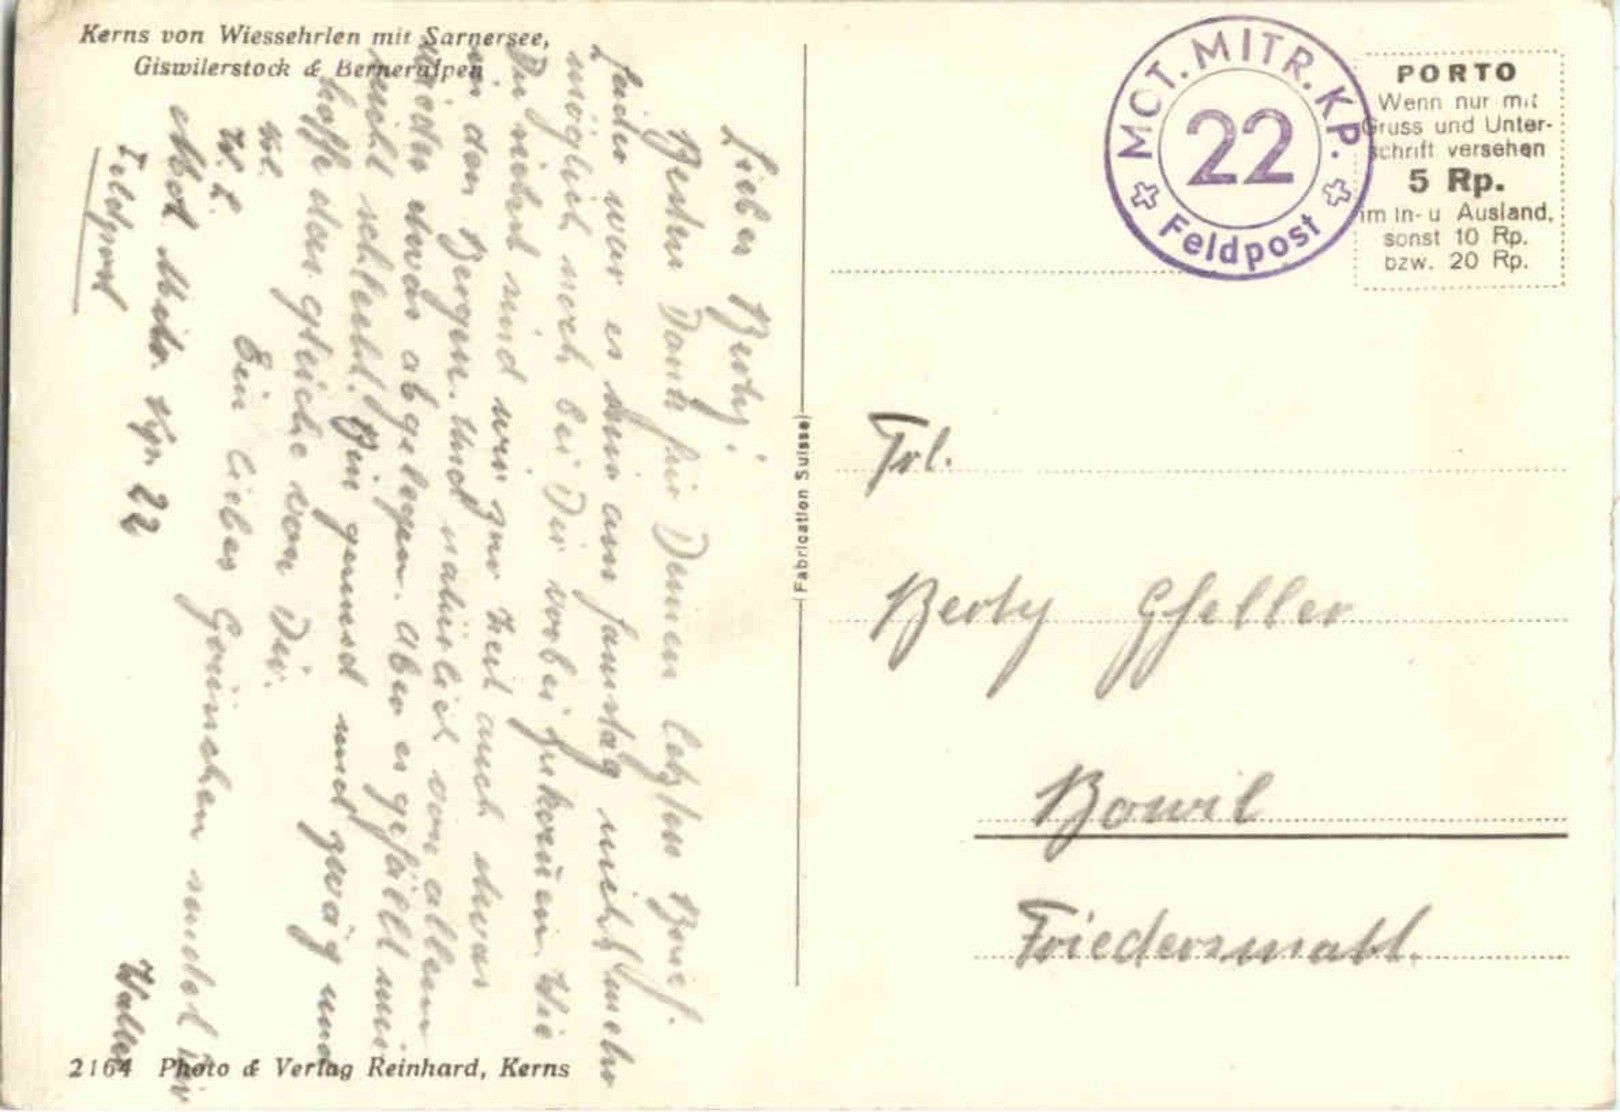 Kerns von Wiessehrlen mit Sarnersee,
Giswilerstock & Berneralpen
MOT. MITR. KP.
22
Feldpost
PORTO
Wenn nur mit
Gruss und Unter-
schrift versehen
5 Rp.
im In- u Ausland,
sonst 10 Rp.
bzw. 20 Rp.
Liebes Berty!
Besten Dank für Deinen letzten Brief.
Leider war es mir am Samstag nicht mehr
möglich noch bei Dir vorbei zu kom̄en. Wie
Du siehst sind wir zur Zeit auch etwas
in den Bergen. Und natürlich von allem
wieder etwas abgelegen. Aber es gefällt mir
nicht schlecht. Bin gesund und zwäg und
hoffe das gleiche von Dir.
Ein liebes Grüsschen sendet Dir
Walter
Mot. Mitr. Kp. 22
Feldpost
Frl.
Berty Gfeller
Bowil
Friedersmatt.
(Fabrication Suisse)
2164 Photo & Verlag Reinhard, Kerns